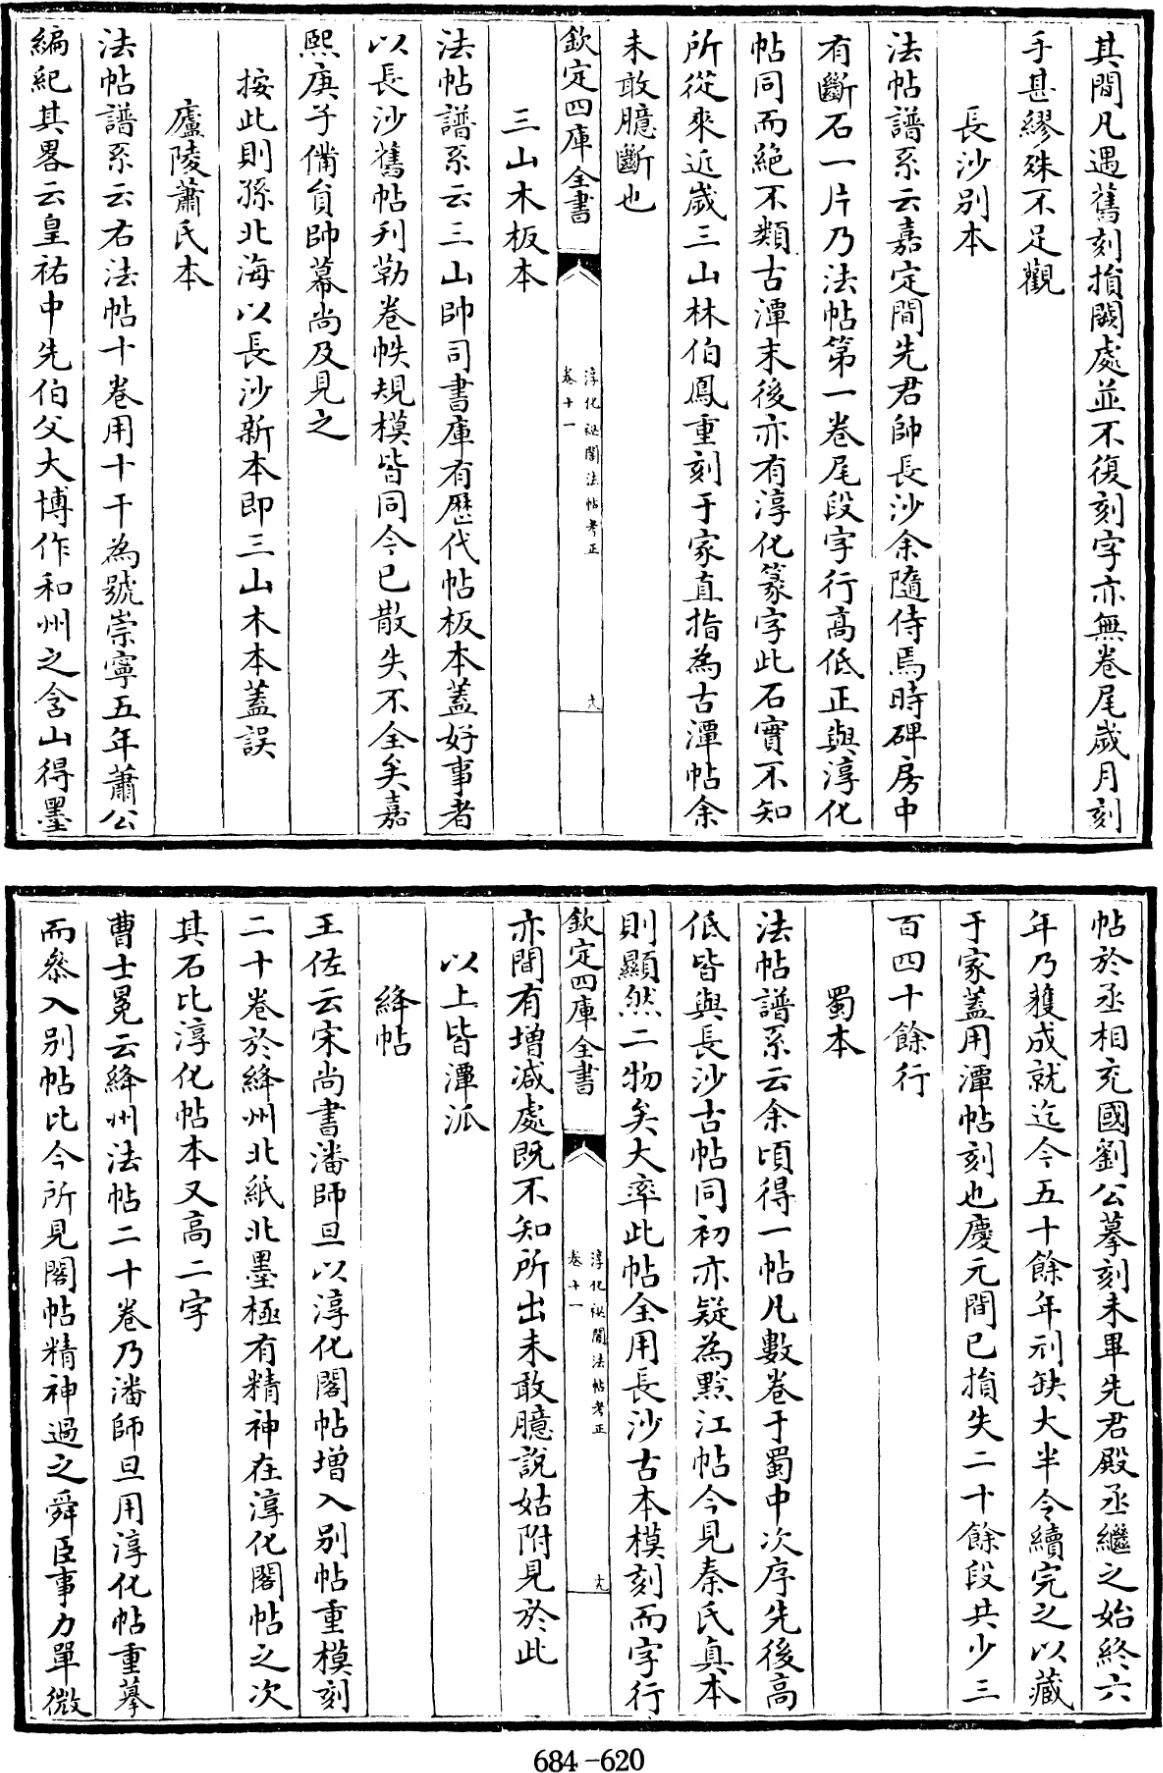 其間凡遇舊刻損闕處並不復刻字亦無卷尾歲月刻
手甚繆殊不足觀
長沙別本
法帖譜系云嘉定間先君帥長沙余隨侍焉時碑房中
有斷石一片乃法帖第一卷尾段字行高低正與淳化
帖同而絶不類古潭末後亦有淳化篆字此石實不知
所從來近歲三山林伯鳳重刻于家直指為古潭帖余
未敢臆斷也
欽定四庫全書
淳化祕閣法帖考正
卷十一
三山木板本
法帖譜系云三山帥司書庫有歷代帖板本蓋好事者
以長沙舊帖刋勒卷帙規模皆同今已散失不全矣嘉
熙庚子備員帥幕尚及見之
按此則孫北海以長沙新本即三山木本蓋誤
廬陵蕭氏本
法帖譜系云右法帖十卷用十干為號崇寧五年蕭公
編紀其畧云皇祐中先伯父大博作和州之含山得墨
帖於丞相兖國劉公摹刻未畢先君殿丞繼之始終六
年乃獲成就迄今五十餘年刓缺大半今續完之以藏
于家蓋用潭帖刻也慶元間已損失二十餘段共少三
百四十餘行
蜀本
法帖譜系云余頃得一帖凡數卷于蜀中次序先後高
低皆與長沙古帖同初亦疑為黔江帖今見秦氏真本
則顯然二物矣大率此帖全用長沙古本模刻而字行
欽定四庫全書
淳化祕閣法帖考正
卷十一
亦間有增減處既不知所出未敢臆說姑附見於此
以上皆潭派
絳帖
王佐云宋尚書潘師旦以淳化閣帖增入別帖重模刻
二十卷於絳州北紙北墨極有精神在淳化閣帖之次
其石比淳化帖本又高二字
曹士冕云絳州法帖二十卷乃潘師旦用淳化帖重摹
而叅入別帖比今所見閣帖精神過之舜臣事力單微
684-620